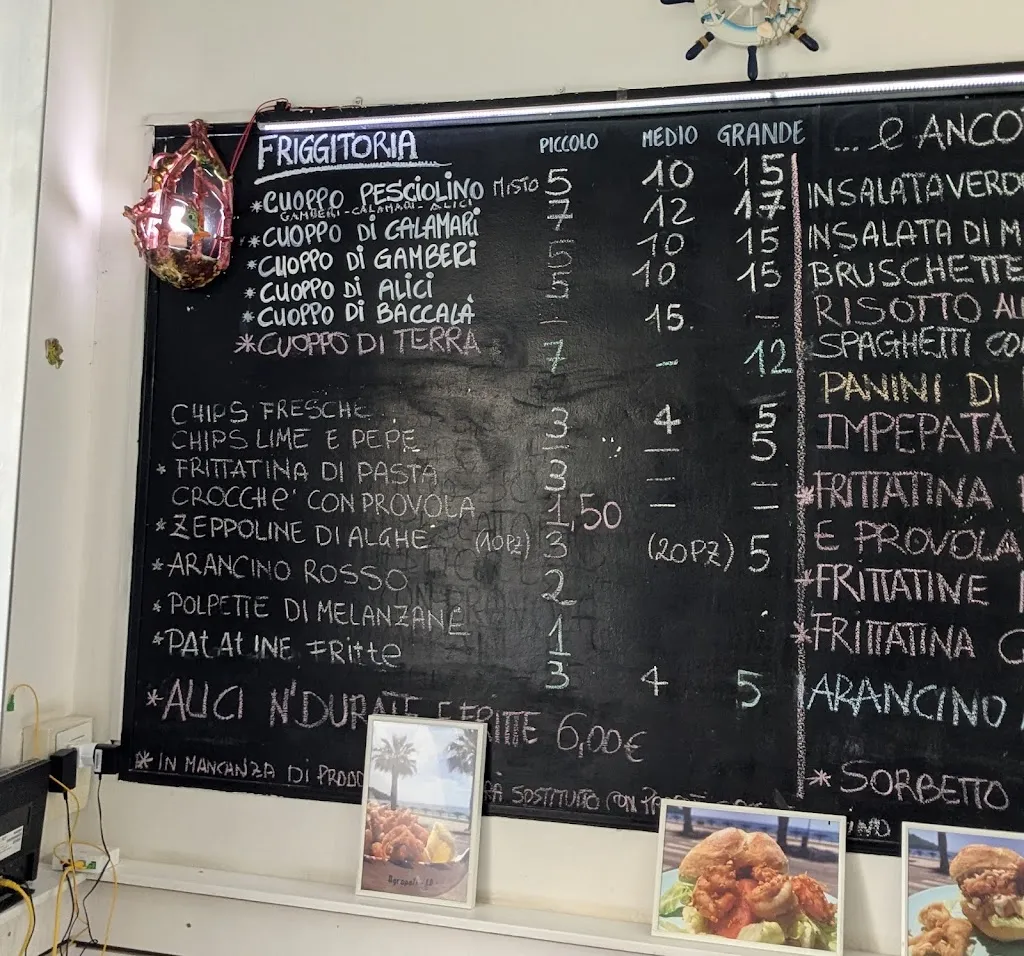 FRIGGITORIA PICCOLO MEDIO GRANDE
*CUOPPO PESCIOLINO MISTO 5 10 15
GAMBERI-CALAMARI-ALICI
*CUOPPO DI CALAMARI 7 12 17
*CUOPPO DI GAMBERI 5 10 15
*CUOPPO DI ALICI 5 10 15
*CUOPPO DI BACCALÀ - 15 -
*CUOPPO DI TERRA 7 - 12
CHIPS FRESCHE 3 4 5
CHIPS LIME E PEPE - 5
* FRITTATINA DI PASTA 3 - -
CROCCHE' CON PROVOLA 1,50 - -
*ZEPPOLINE DI ALGHE (10PZ) 3 (20PZ) 5
*ARANCINO ROSSO 2
*POLPETTE DI MELANZANE 1
*PATATINE FRITTE 3 4 5
*ALICI N'DURATE E FRITTE 6,00€
* IN MANCANZA DI SOSTITUITO CON
...e ANCO
INSALATA VERD
INSALATA DI M
BRUSCHETTE
RISOTTO AL
SPAGHETTI CO
PANINI DI
IMPEPATA
*FRITTATINA
E PROVOLA
*FRITTATINE
*FRITTATINA
ARANCINO
* SORBETTO
Agropoli